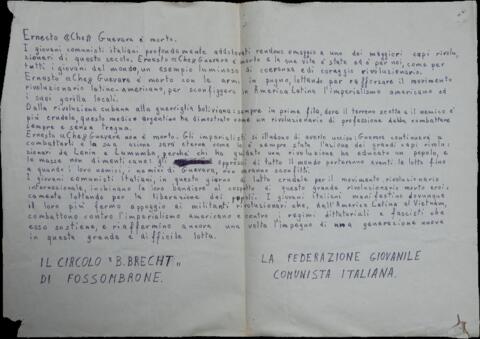 Ernesto «Che» Guevara è morto.
I giovani comunisti italiani profondamente addolorati rendono omaggio a uno dei maggiori capi rivolu,
zionari di questo secolo. Ernesto «Che» Guevara è morto e la sua vita è stata ed è per noi, come per
tutti i giovani del mondo, un esempio luminoso di coerenza e di coraggio rivoluzionario.
Ernesto «Che» Guevara è morto con le armi in pugno, lottando per rafforzare il movimento
rivoluzionario latino-americano, per sconfiggere in America Latina l'imperialismo americano ed
i suoi gorilla locali.
Dalla rivoluzione cubana alla guerriglia boliviana: sempre in prima fila, dove il terreno scotta e il nemico è
più crudele, questo medico argentino ha dimostrato come un rivoluzionario di professione debba combattere
sempre e senza tregua.
Ernesto «Che» Guevara non è morto. Gli imperialisti si illudono di averlo ucciso; Guevara continuerà a
combatterli e la sua azione sarà eterna come lo è sempre stata l'azione dei grandi capi rivolu,
zionari da Lenin a Lumumba perché chi ha guidato una rivoluzione ha educato un popolo, e
le masse non dimenticano: gli oppressi di tutto il mondo porteranno avanti la lotta fino
a quando i loro nemici, i nemici di Guevara, non saranno sconfitti.
I giovani comunisti italiani, in questo giorno di lutto crudele per il movimento rivoluzionario
internazionale, inchinano le loro bandiere al cospetto di questo grande rivoluzionario morto eroi,
camente lottando per la liberazione dei popoli. I giovani italiani manifestino dovunque
il loro più fermo appoggio ai militanti rivoluzionari che, dall'America Latina al Vietnam,
combattono contro l'imperialismo americano e contro i regimi dittatoriali e fascisti che
esso sostiene, e riaffermino ancora una volta l'impegno di una generazione nuova
in questa grande e difficile lotta.
IL CIRCOLO "B. BRECHT"
DI FOSSOMBRONE.
LA FEDERAZIONE GIOVANILE
COMUNISTA ITALIANA.